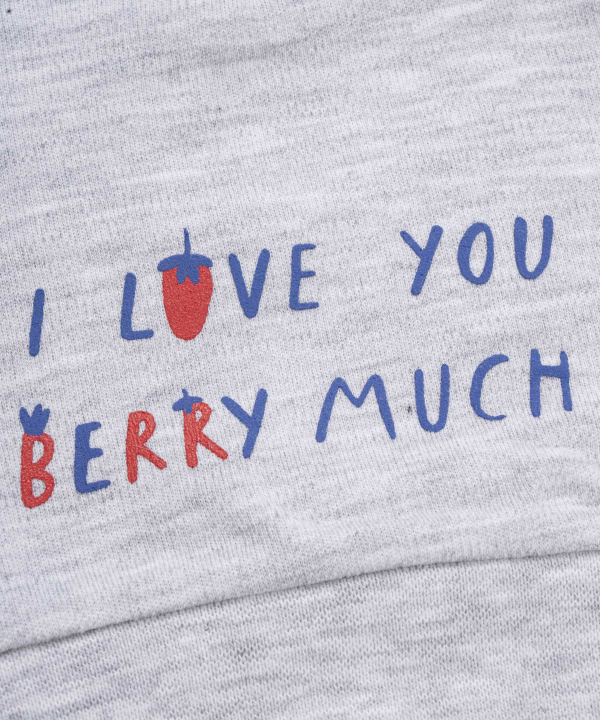 I LOVE YOU
BERRY MUCH